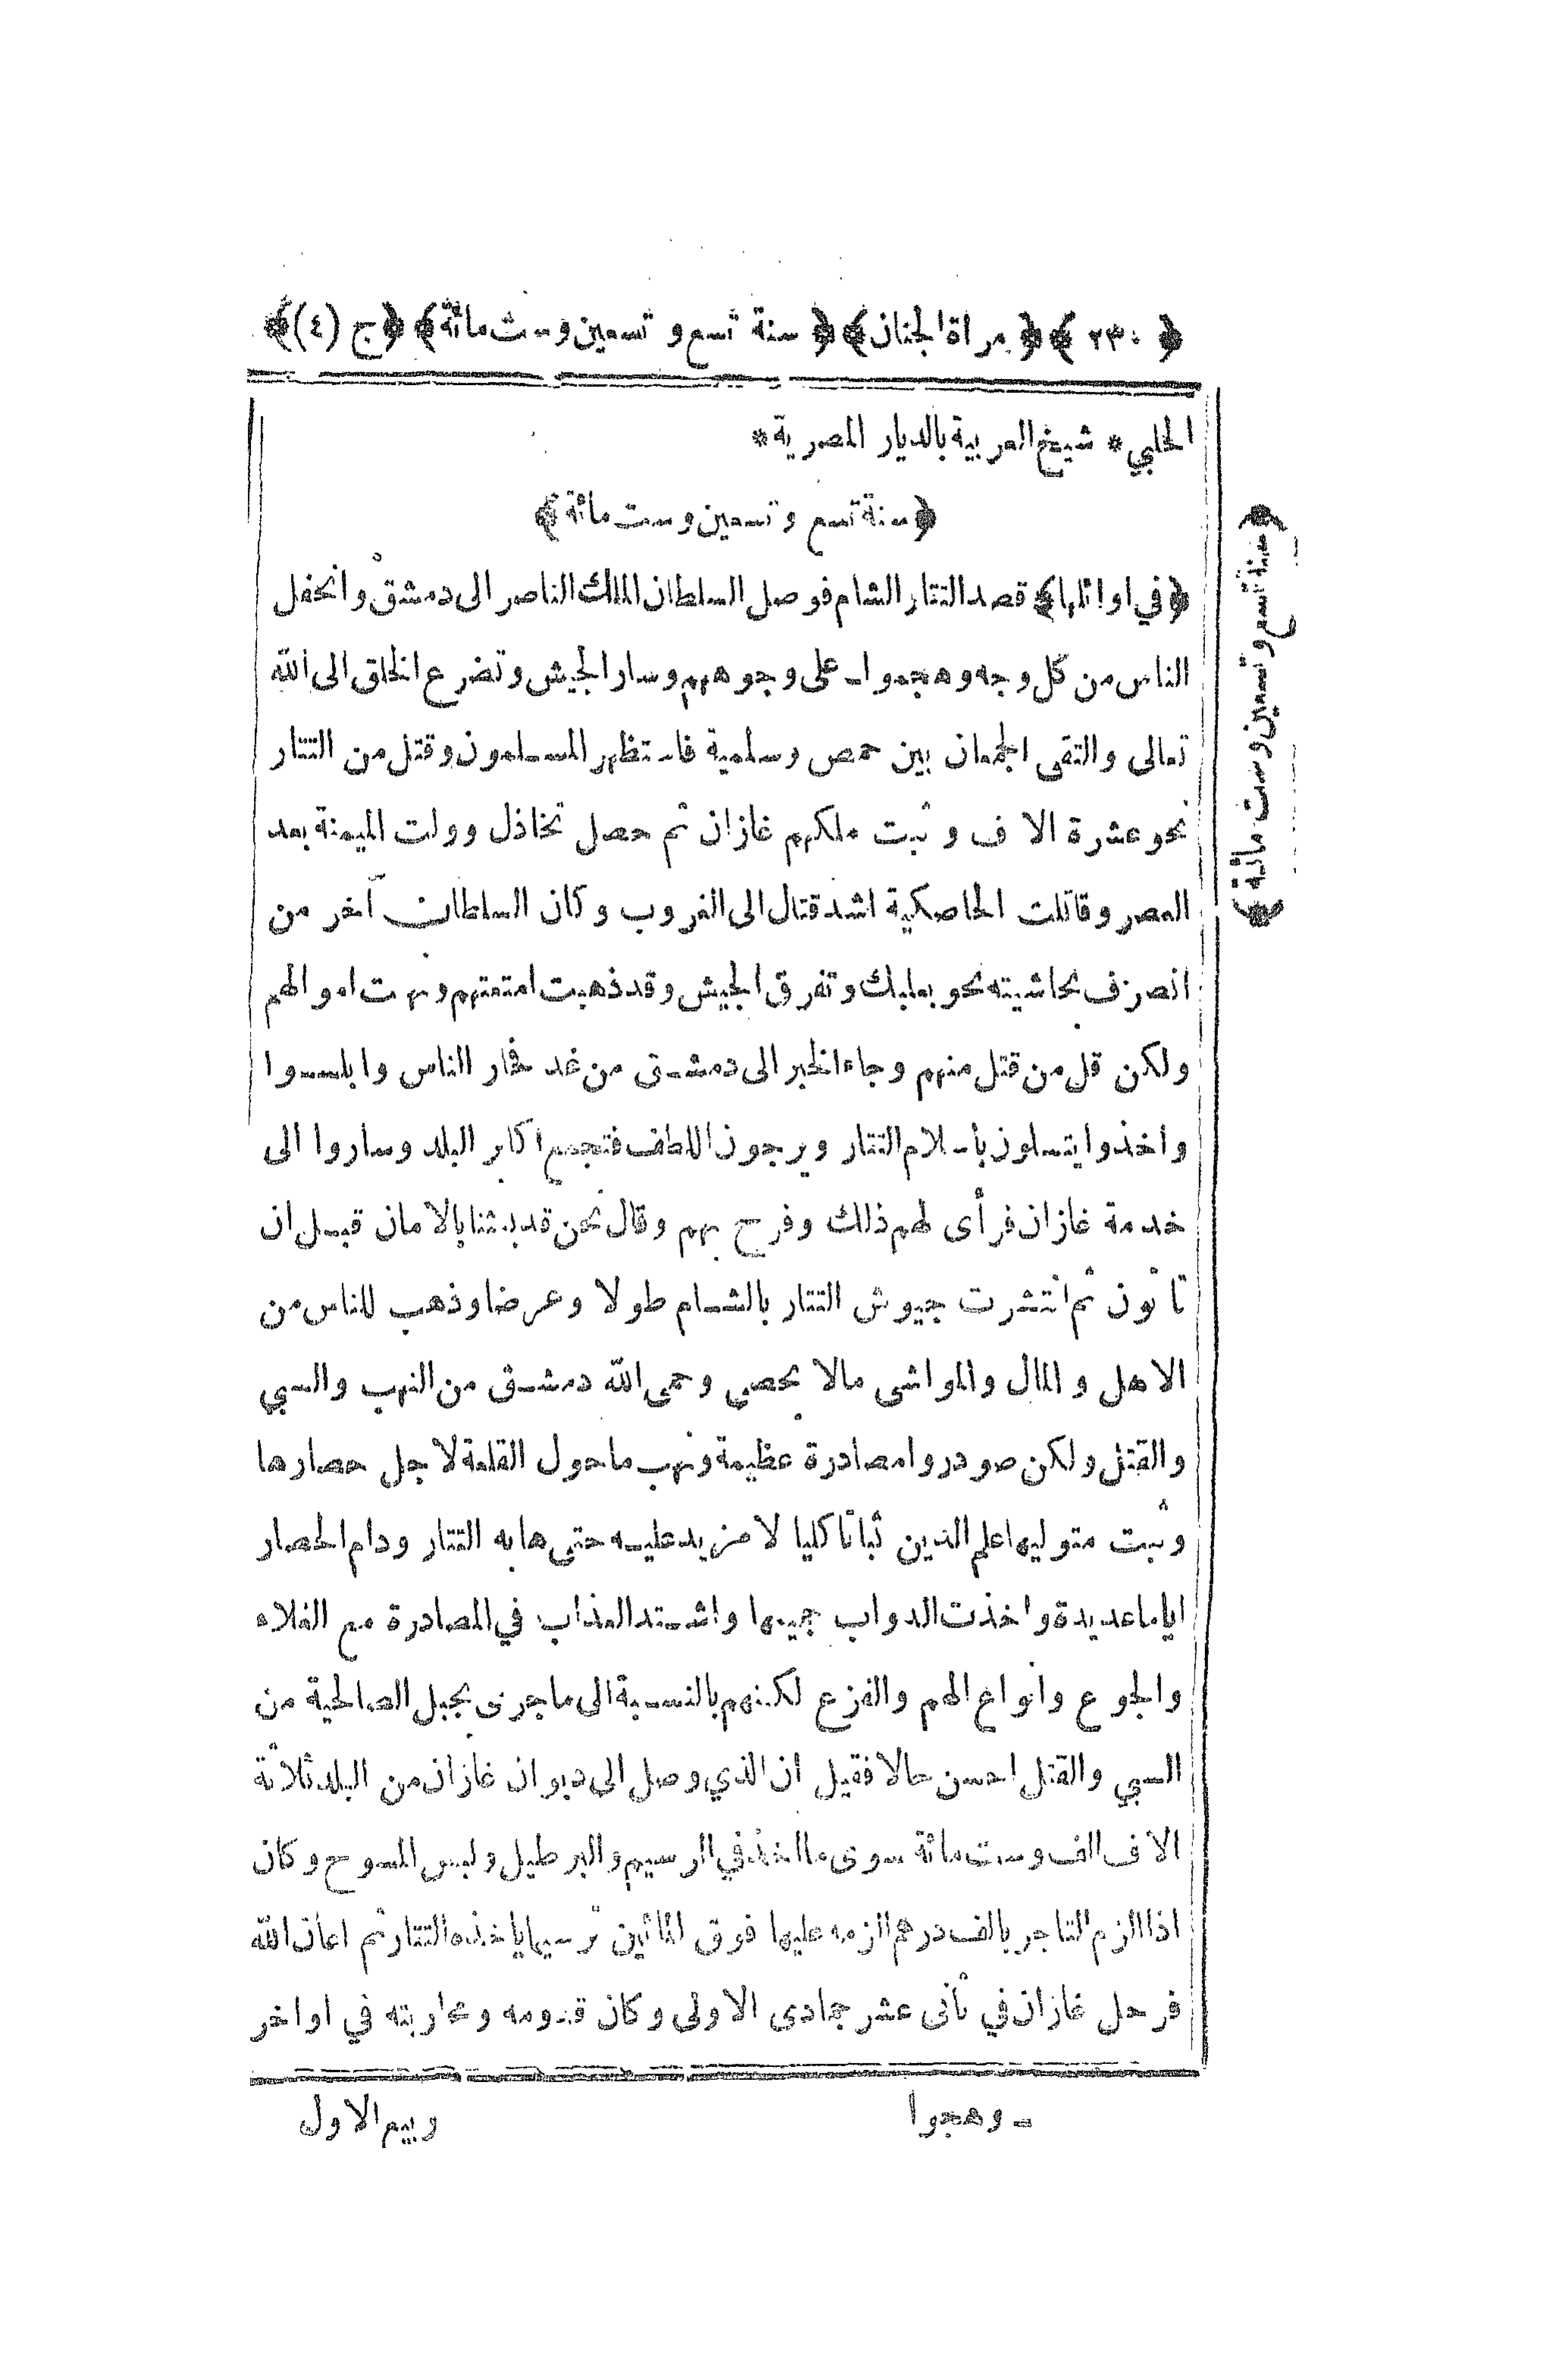 ﴿ ٢٣٠ ﴾ ﴿ مرآة الجنان ﴾ ﴿ سنة تسع و تسعين وست مائة ﴾ ﴿ ج (٤) ﴾
الحلبي * شيخ العربية بالديار المصرية *
﴿ سنة تسع و تسعين وست مائة ﴾
﴿ في اوائلها ﴾ قصد التتار الشام فوصل السلطان الملك الناصر الى دمشق وانجفل
الناس من كل وجه وهجموا ـ على وجوههم وسار الجيش وتضرع الخلق الى الله
تعالى والتقى الجمعان بين حمص وسلمية فاستظهر المسلمون وقتل من التتار
نحو عشرة الاف و ثبت ملكهم غازان ثم حصل تخاذل وولت الميمنة بعد
العصر وقاتلت الخاصكية اشد قتال الى الغروب وكان السلطان آخر من
انصرف بحاشيته نحو بعلبك وتفرق الجيش وقد ذهبت امتعتهم ونهبت اموالهم
ولكن قل من قتل منهم وجاء الخبر الى دمشق من غد فحار الناس وابلسوا
واخذوا يتسلون بأسلام التتار ويرجون اللطف فتجمع اكابر البلد وساروا الى
خدمة غازان فرأى لهم ذلك وفرح بهم وقال نحن قد بعثنا بالامان قبل ان
تأتون ثم انتشرت جيوش التتار بالشام طولا وعرضا وذهب للناس من
الاهل و المال والمواشى مالا يحصى وحمى الله دمشق من النهب والسبي
والقتل ولكن صودروا مصادرة عظيمة ونهب ما حول القلعة لاجل حصارها
وثبت متوليها علم الدين ثباتا كليا لا مزيد عليه حتى هابه التتار ودام الحصار
اياما عديدة واخذت الدواب جميعها واشتد العذاب في المصادرة مع الغلاء
والجوع وانواع الهم والفزع لكنهم بالنسبة الى ما جرى بجبل الصالحية من
السبي والقتل احسن حالا فقيل ان الذي وصل الى ديوان غازان من البلد ثلاثة
الاف الف وست مائة سوى ما اخذ في الرسيم والبرطيل ولبس المسوح وكان
اذا الزم التاجر بالف درهم الزمه عليها فوق المائتين ترسيما يأخذه التتار ثم اعان الله
فرحل غازان في ثانى عشر جمادى الاولى وكان قدومه ومحاربته في اواخر
ـ وهجوا
ربيع الاول
﴿ سنة تسع وتسعين وست مائة ﴾